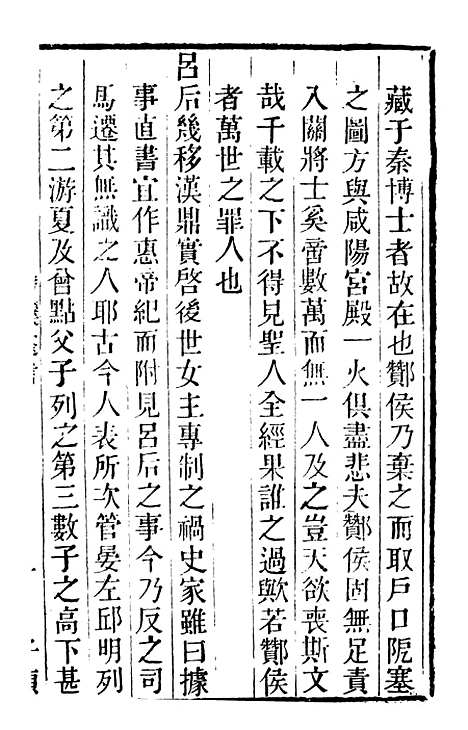 藏于秦博士者故在也酇侯乃棄之而取戶口阨塞
之圖方與咸陽宮殿一火俱盡悲夫酇侯固無足責
入關將士奚啻數萬而無一人及之豈天欲喪斯文
哉千載之下不得見聖人全經果誰之過歟若酇侯
者萬世之罪人也
呂后幾移漢鼎實啓後世女主專制之禍史家雖曰據
事直書宜作惠帝紀而附見呂后之事今乃反之司
馬遷其無識之人耶古今人表所次管晏左邱明列
之第二游夏及曾點父子列之第三數子之高下甚